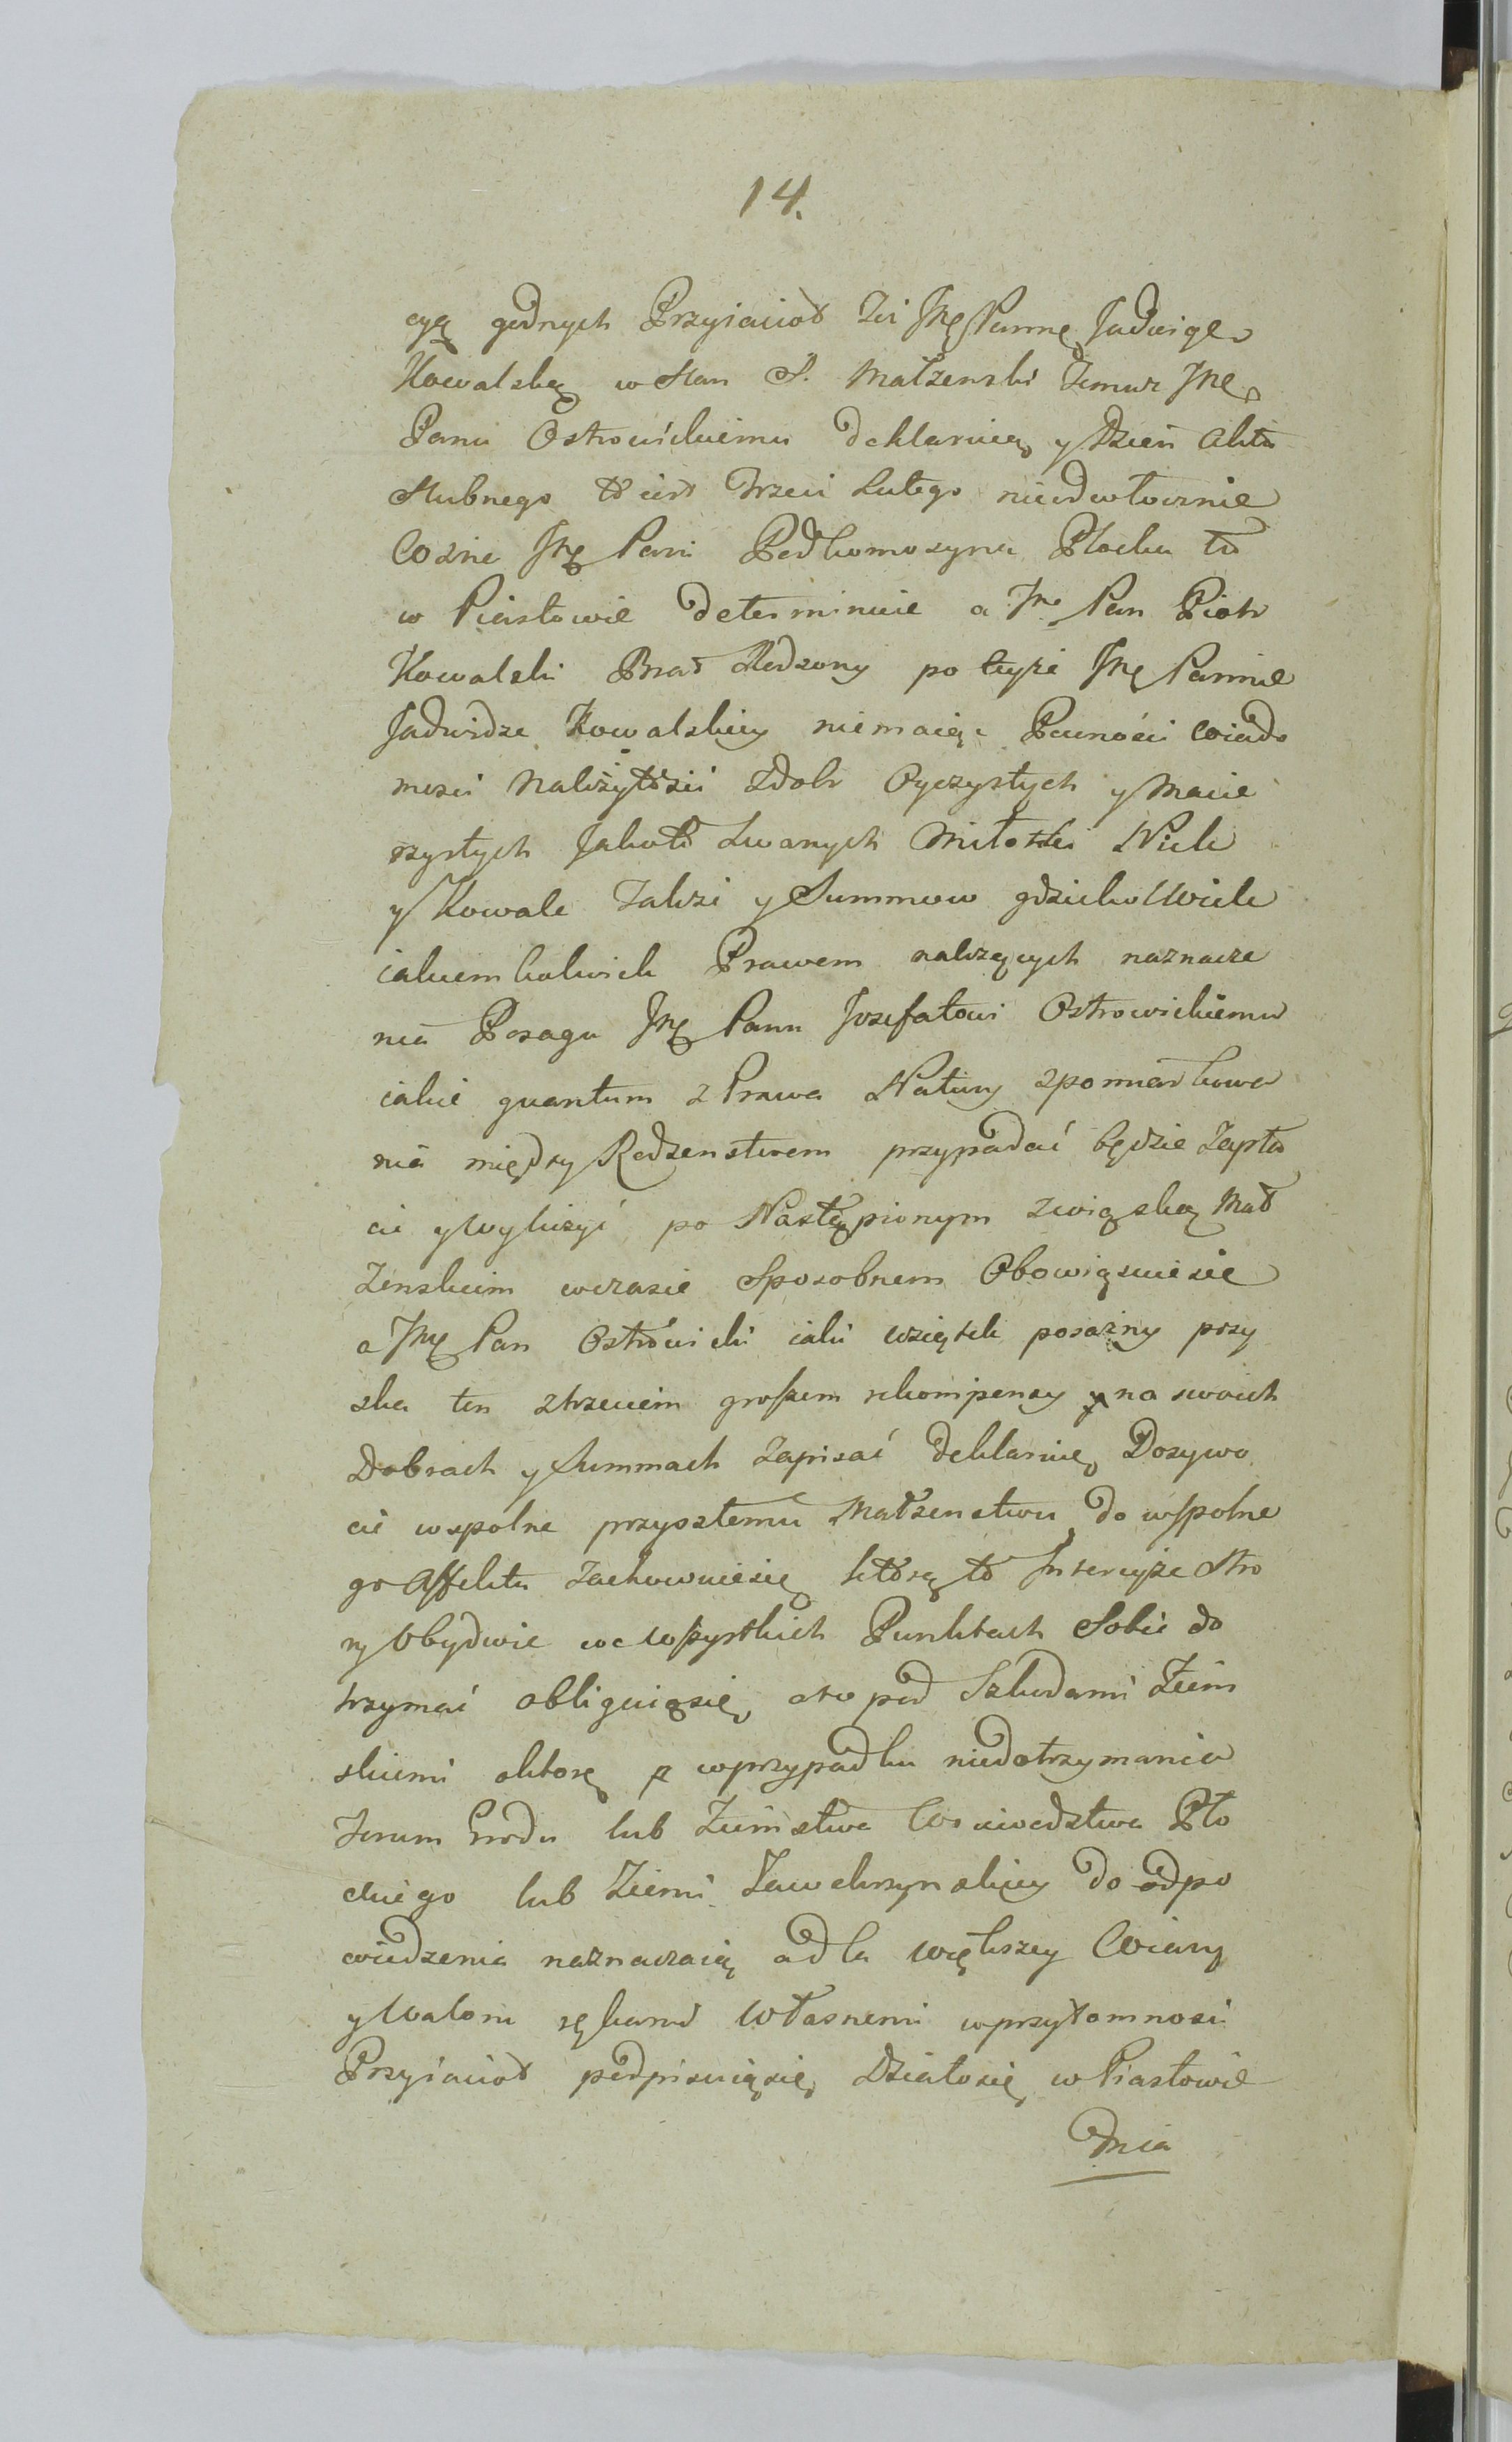 14.
cyą godnych Przyiacioł Im Jmę Pannę Jadwigę
Kowalską w Stan S. Małżenski Temuz Jmę
Panu Ostrowickiemu deklaruię y Dzień Aktu
Slubnego to iest Trzeci Lutego nieodwłocznie
Wozna Jmę Pani Podkomorzyna Płocka to
w Piastowie determinuie a Jmę Pan Piotr
Kowalski Brat Rodzony po teyże Jmę Pannie
Jadwidze Kowalskiey niemaiąc Pewności wiado
mości Należytości z dobr Oyczystych y Macie
rzystych Jakoto zwanych Miłotki Niek
y Kowale także y Summow gdziekolwiek
iakiem kolwiek Prawem należących naznacze
nia Posagu Jmę Panu Jozefatowi Ostrowickiemu
iakie quantum z Prawa Natury z pomiarkowa
nia między Rodzenstwem przypadać będzie zapła
cić y wyliczyć po Nastąpionym związku Mał
żenskim w czasie Sposobnem Obowiązuie się
a Jmę Pan Ostrowicki iaki wziątek posażny przy
zka ten z trzeciem groszem rekompensy na swoich
Dobrach y Summach zapisać deklaruię, Dozywo
cie wspolne przyszłemu Małżenstwu do wspolne
go Affektu zachowuie się którą to Intercyzę Stro
ny Obydwie we wszystkich Punktach Sobie do
trzymać obliguią się, a to pod Szkodami Ziem
skiemi o które w przypadku niedotrzymania
Forum Grodu lub Ziemstwa Woiewodztwa Pło
ckiego lub Ziemi Zawkrzynskiey do odpo
wiedzenia naznaczaią a dla większey Wiary
y Waloru rękami Własnemi w przytomności
Przyiacioł podpisuią się, Działo się w Piastowie
Dnia